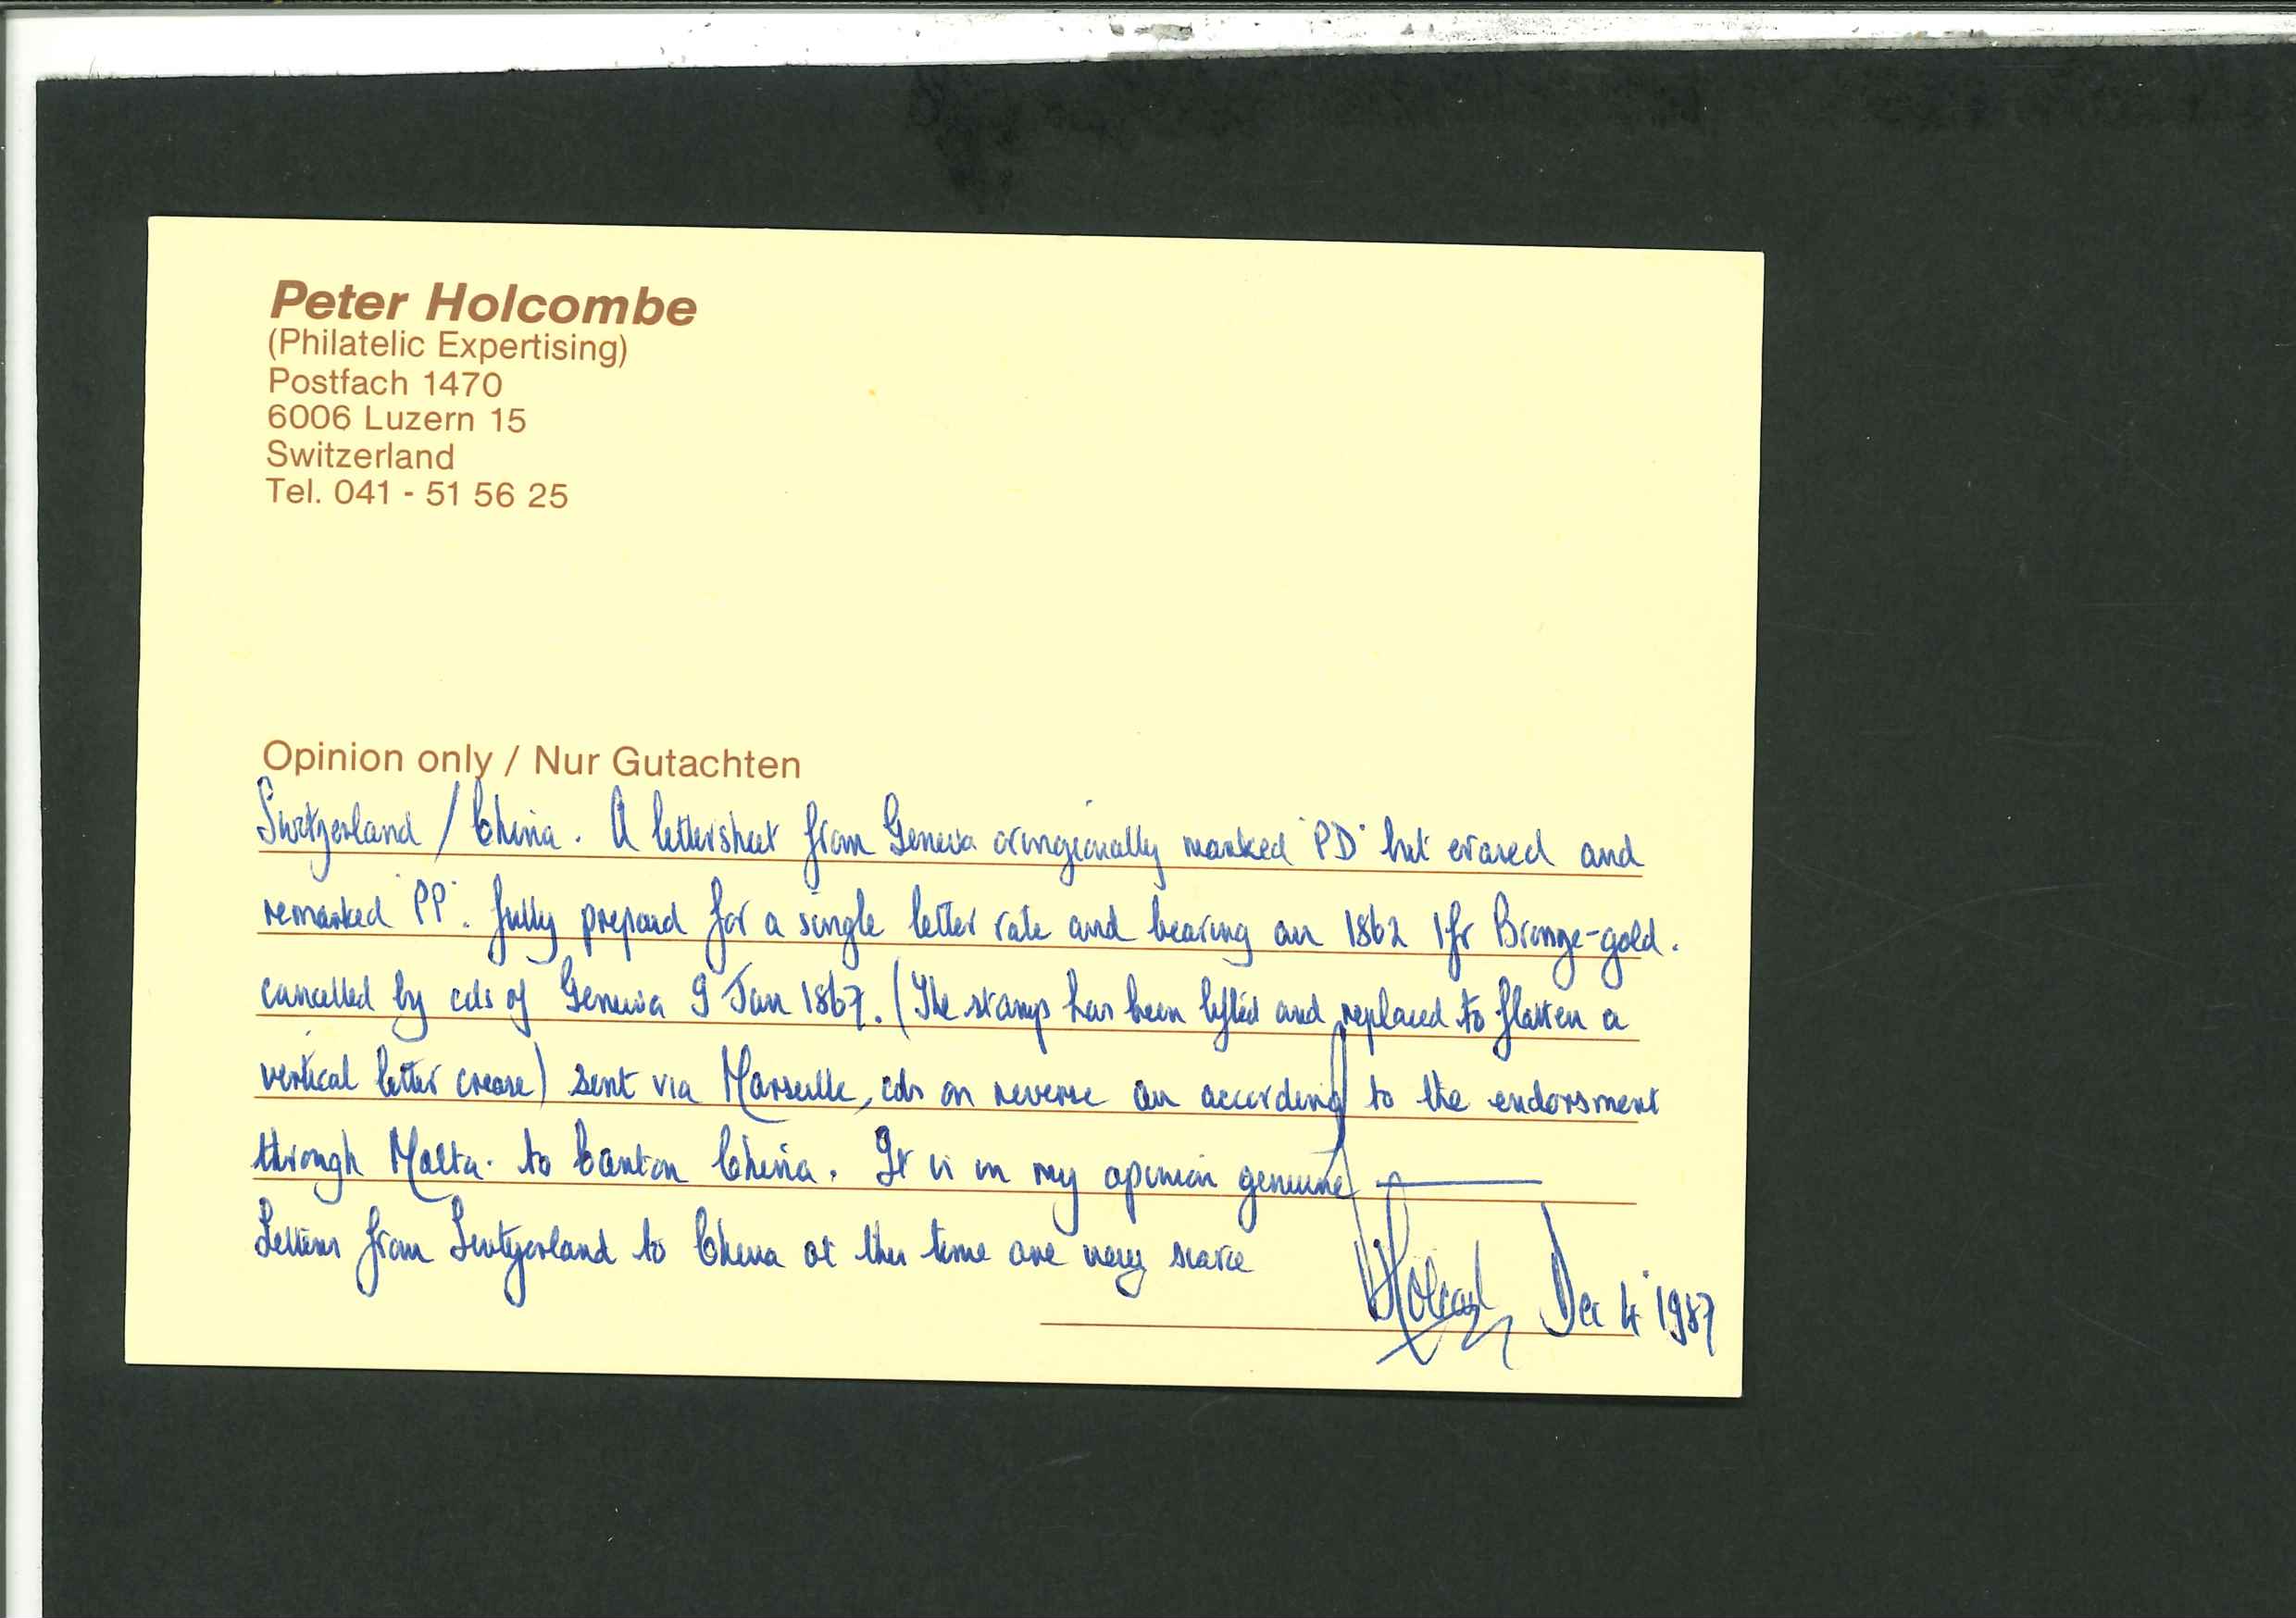 Peter Holcombe
(Philatelic Expertising)
Postfach 1470
6006 Luzern 15
Switzerland
Tel. 041 - 51 56 25
Opinion only / Nur Gutachten
Switzerland / China. A lettersheet from Geneva oringionally marked 'PD' but erased and
remarked 'PP'. fully prepaid for a single letter rate and bearing an 1862 1fr Bronze-gold.
cancelled by cds of Geneva 9 Jan 1867. (The stamp has been lifted and replaced to flatten a
vertical letter crease) sent via Marseille, cds on reverse an according to the endorsment
through Malta. to Canton China. It is in my opinion genuine
Letters from Switzerland to China at this time are very scarce
PHolcombe Dec 4 1987